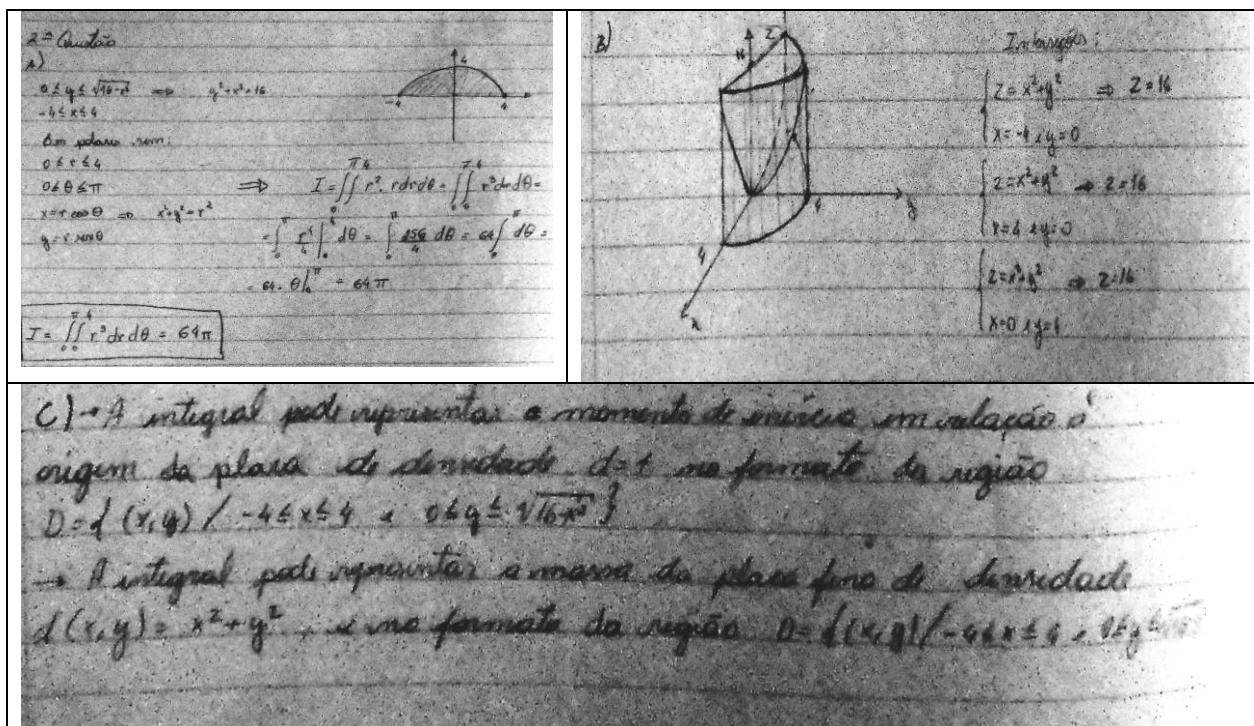 2ª Questão
A)
0 ≤ y ≤ √16-x² ⇒ y²+x²=16
-4 ≤ x ≤ 4
4
-4 4
Em polares sem:
0 ≤ r ≤ 4
0 ≤ θ ≤ π
x = r cos θ ⇒ x²+y² = r²
y = r senθ
⇒ I = ∫₀^π ∫₀^4 r². r dr dθ = ∫₀^π ∫₀^4 r³ dr dθ =
= ∫₀^π r⁴/4 |₀^4 dθ = ∫₀^π 256/4 dθ = 64 ∫₀^π dθ =
= 64. θ|₀^π = 64π
I = ∫₀^π ∫₀^4 r³ dr dθ = 64π
B)
Z
4
y
4
x
Z = x²+y² ⇒ Z = 16
x = -4 e y = 0
Z = x²+y² ⇒ Z = 16
x = 4 e y = 0
Z = x²+y² ⇒ Z = 16
x = 0 e y = 4
C) → A integral pode representar o momento de inércia em relação à
origem da placa de densidade d=1 no formato da região
D = { (x,y) / -4 ≤ x ≤ 4 e 0 ≤ y ≤ √16-x² }
→ A integral pode representar a massa da placa fina de densidade
d(x,y) = x²+y², e no formato da região D = {(x,y) / -4 ≤ x ≤ 4 e 0 ≤ y ≤